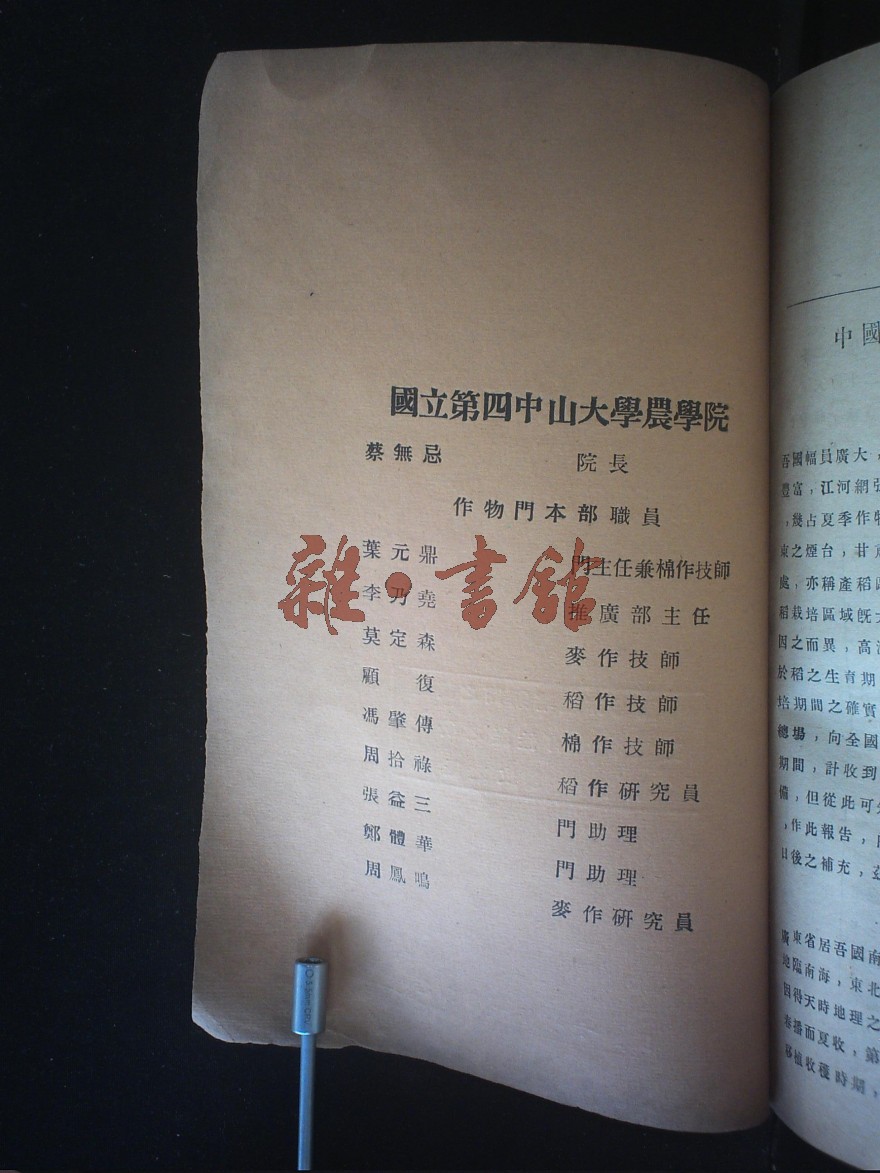 國立第四中山大學農學院
蔡無忌 院長
作物門本部職員
葉元鼎 門主任兼棉作技師
李乃堯 推廣部主任
莫定森 麥作技師
顧復 稻作技師
馮肇傳 棉作技師
周拾祿 稻作研究員
張益三 門助理
鄭體華 門助理
周鳳鳴 麥作研究員
雜·書館
中國
吾國幅員廣大，
豐富，江河網
，幾占夏季作物
東之煙台，甘肅
處，亦稱產稻
稻栽培區域旣
因之而異，高
於稻之生育期
培期間之確實
總場，向全國
期間，計收到
備，但從此可
，作此報告，
日後之補充，
廣東省居吾國南
地臨南海，東北
因得天時地理之
春播而夏收，第
移植收穫時期，